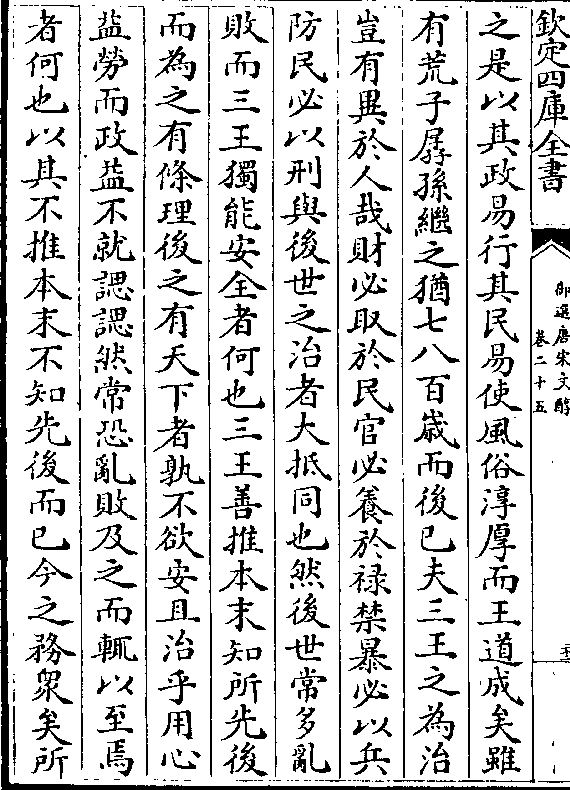 欽定四庫全書
御選唐宋文醇
卷二十五
之是以其政易行其民易使風俗淳厚而王道成矣雖
有荒子孱孫繼之猶七八百歳而後已夫三王之為治
豈有異於人哉財必取於民官必養於禄禁暴必以兵
防民必以刑與後世之治者大抵同也然後世常多亂
敗而三王獨能安全者何也三王善推本末知所先後
而為之有條理後之有天下者孰不欲安且治乎用心
益勞而政益不就諰諰然常恐亂敗及之而輒以至焉
者何也以其不推本末不知先後而已今之務衆矣所